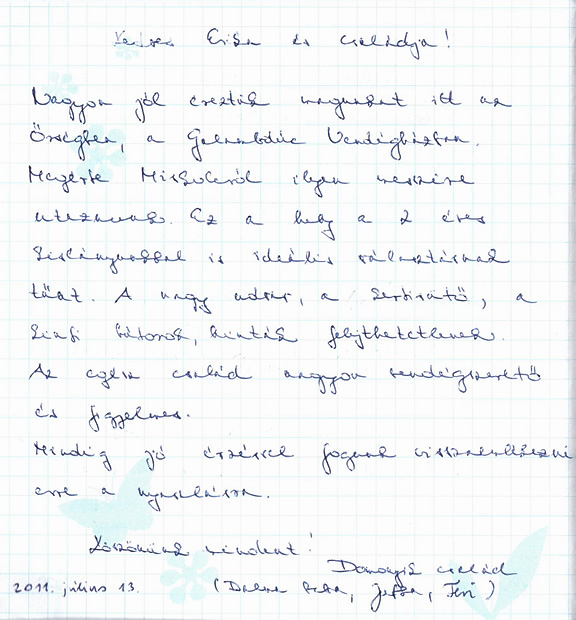 Kedves Erika és családja!
Nagyon jól éreztük magunkat itt az
Őrségben, a Galambdúc Vendégházban.
Megérte Miskolcról ilyen messzire
utaznunk. Ez a hely a 2 éves
kislányunkkal is ideális választásnak
tűnt. A nagy udvar, a kerti sütő, a
kinti bútorok, hinták felejthetetlenek.
Az egész család nagyon vendégszerető
és figyelmes.
Mindig jó érzéssel fogunk visszaemlékezni
erre a nyaralásra.
Köszönünk mindent!
család
2011. július 13. (Réka, Feri)